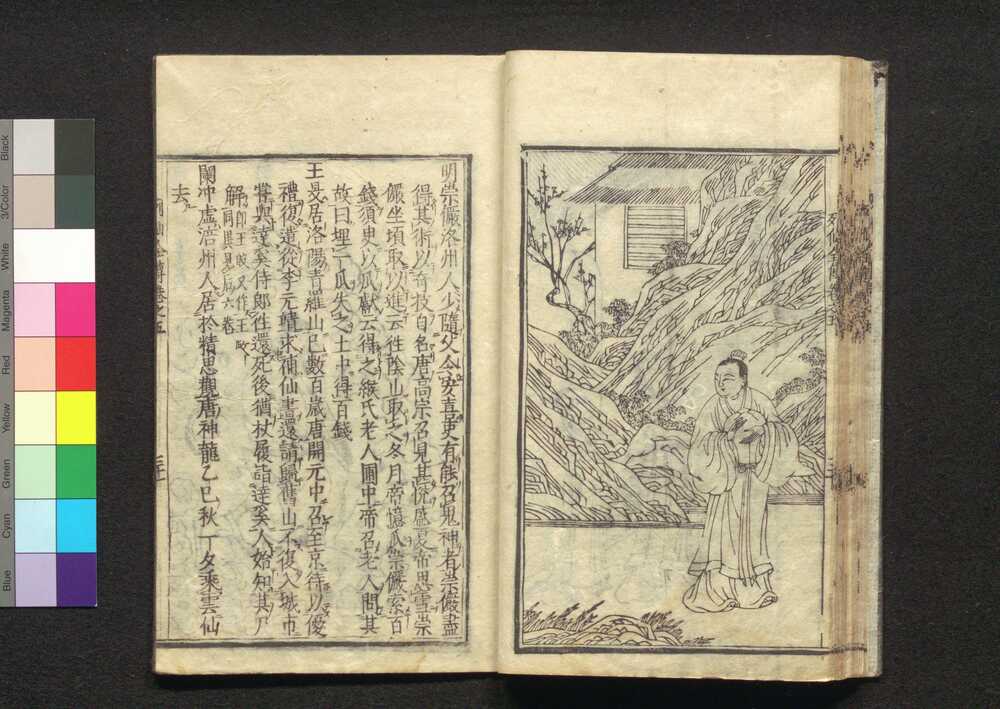 明崇儼洛州人少隨父令安喜吏有能召鬼神者崇儼盡
得其術以奇技自名唐高宗召見甚悅盛夏帝思雪崇
儼坐頃取以進云往陰山取之冬月帝憶瓜崇儼索百
錢須臾以瓜獻云得之緱氏老人圃中帝召老人問其
故曰埋一瓜失之土中得百錢
王旻居洛陽青蘿山已數百歲唐開元中召至京待以優
禮復遣從李元靖求補仙書還請歸舊山不復入城市
嘗與達奚侍郎往還死後猶杖屨詣達奚人始知其尸
解
去
蘭冲虛涪州人居於精思觀唐神龍乙巳秋丁夕乘雲仙
Black
3/Color
White
Magenta
Red
Yellow
Green
Cyan
Blue